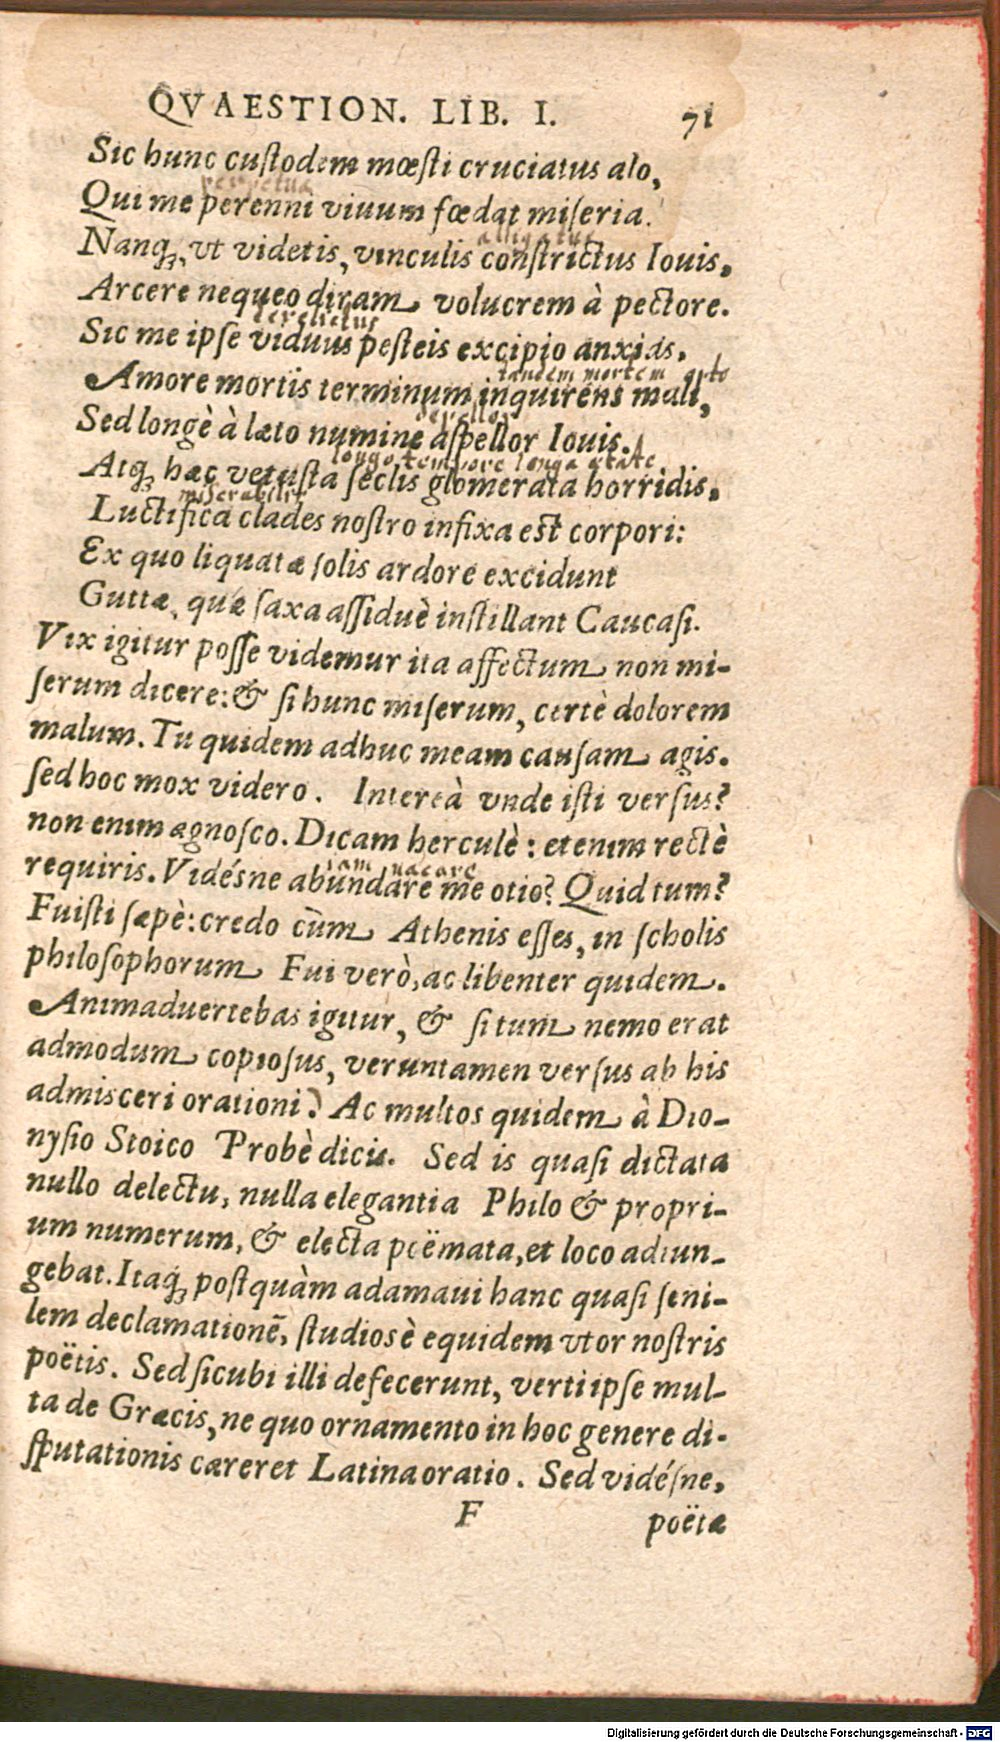 QVAESTION. LIB. I. 71
Sic hunc custodem mœsti cruciatus alo,
perpetua
Qui me perenni viuum fœdat miseria.
alligatus
Nanq́;, vt videtis, vinculis constrictus Iouis,
Arcere nequeo diram volucrem à pectore.
derelictus
Sic me ipse viduus pesteis excipio anxias.
tandem mortem opto
Amore mortis terminum inquirens mali,
depellor
Sed longè à læto numine aspellor Iouis.
longo tempore longa ætate
Atq́; hæc vetusta seclis glomerata horridis,
miserabilis
Luctifica clades nostro infixa est corpori:
Ex quo liquatæ solis ardore excidunt
Guttæ, quæ saxa assiduè instillant Caucasi.
Vix igitur posse videmur ita affectum non mi-
serum dicere: & si hunc miserum, certè dolorem
malum. Tu quidem adhuc meam causam agis.
sed hoc mox videro. Intereà vnde isti versus?
non enim agnosco. Dicam herculè: etenim rectè
iam vacare
requiris. Vidésne abundare me otio? Quid tum?
Fuisti sæpè: credo cùm Athenis esses, in scholis
philosophorum Fui verò, ac libenter quidem.
Animaduertebas igitur, & si tum nemo erat
admodum copiosus, veruntamen versus ab his
admisceri orationi? Ac multos quidem à Dio-
nysio Stoico Probè dicis. Sed is quasi dictata
nullo delectu, nulla elegantia Philo & propri-
um numerum, & electa poëmata, et loco adiun-
gebat. Itaq́; postquàm adamaui hanc quasi seni-
lem declamationē, studiosè equidem vtor nostris
poëtis. Sed sicubi illi defecerunt, verti ipse mul-
ta de Græcis, ne quo ornamento in hoc genere di-
sputationis careret Latina oratio. Sed vidésne,
F poëtæ
Digitalisierung gefördert durch die Deutsche Forschungsgemeinschaft - DFG